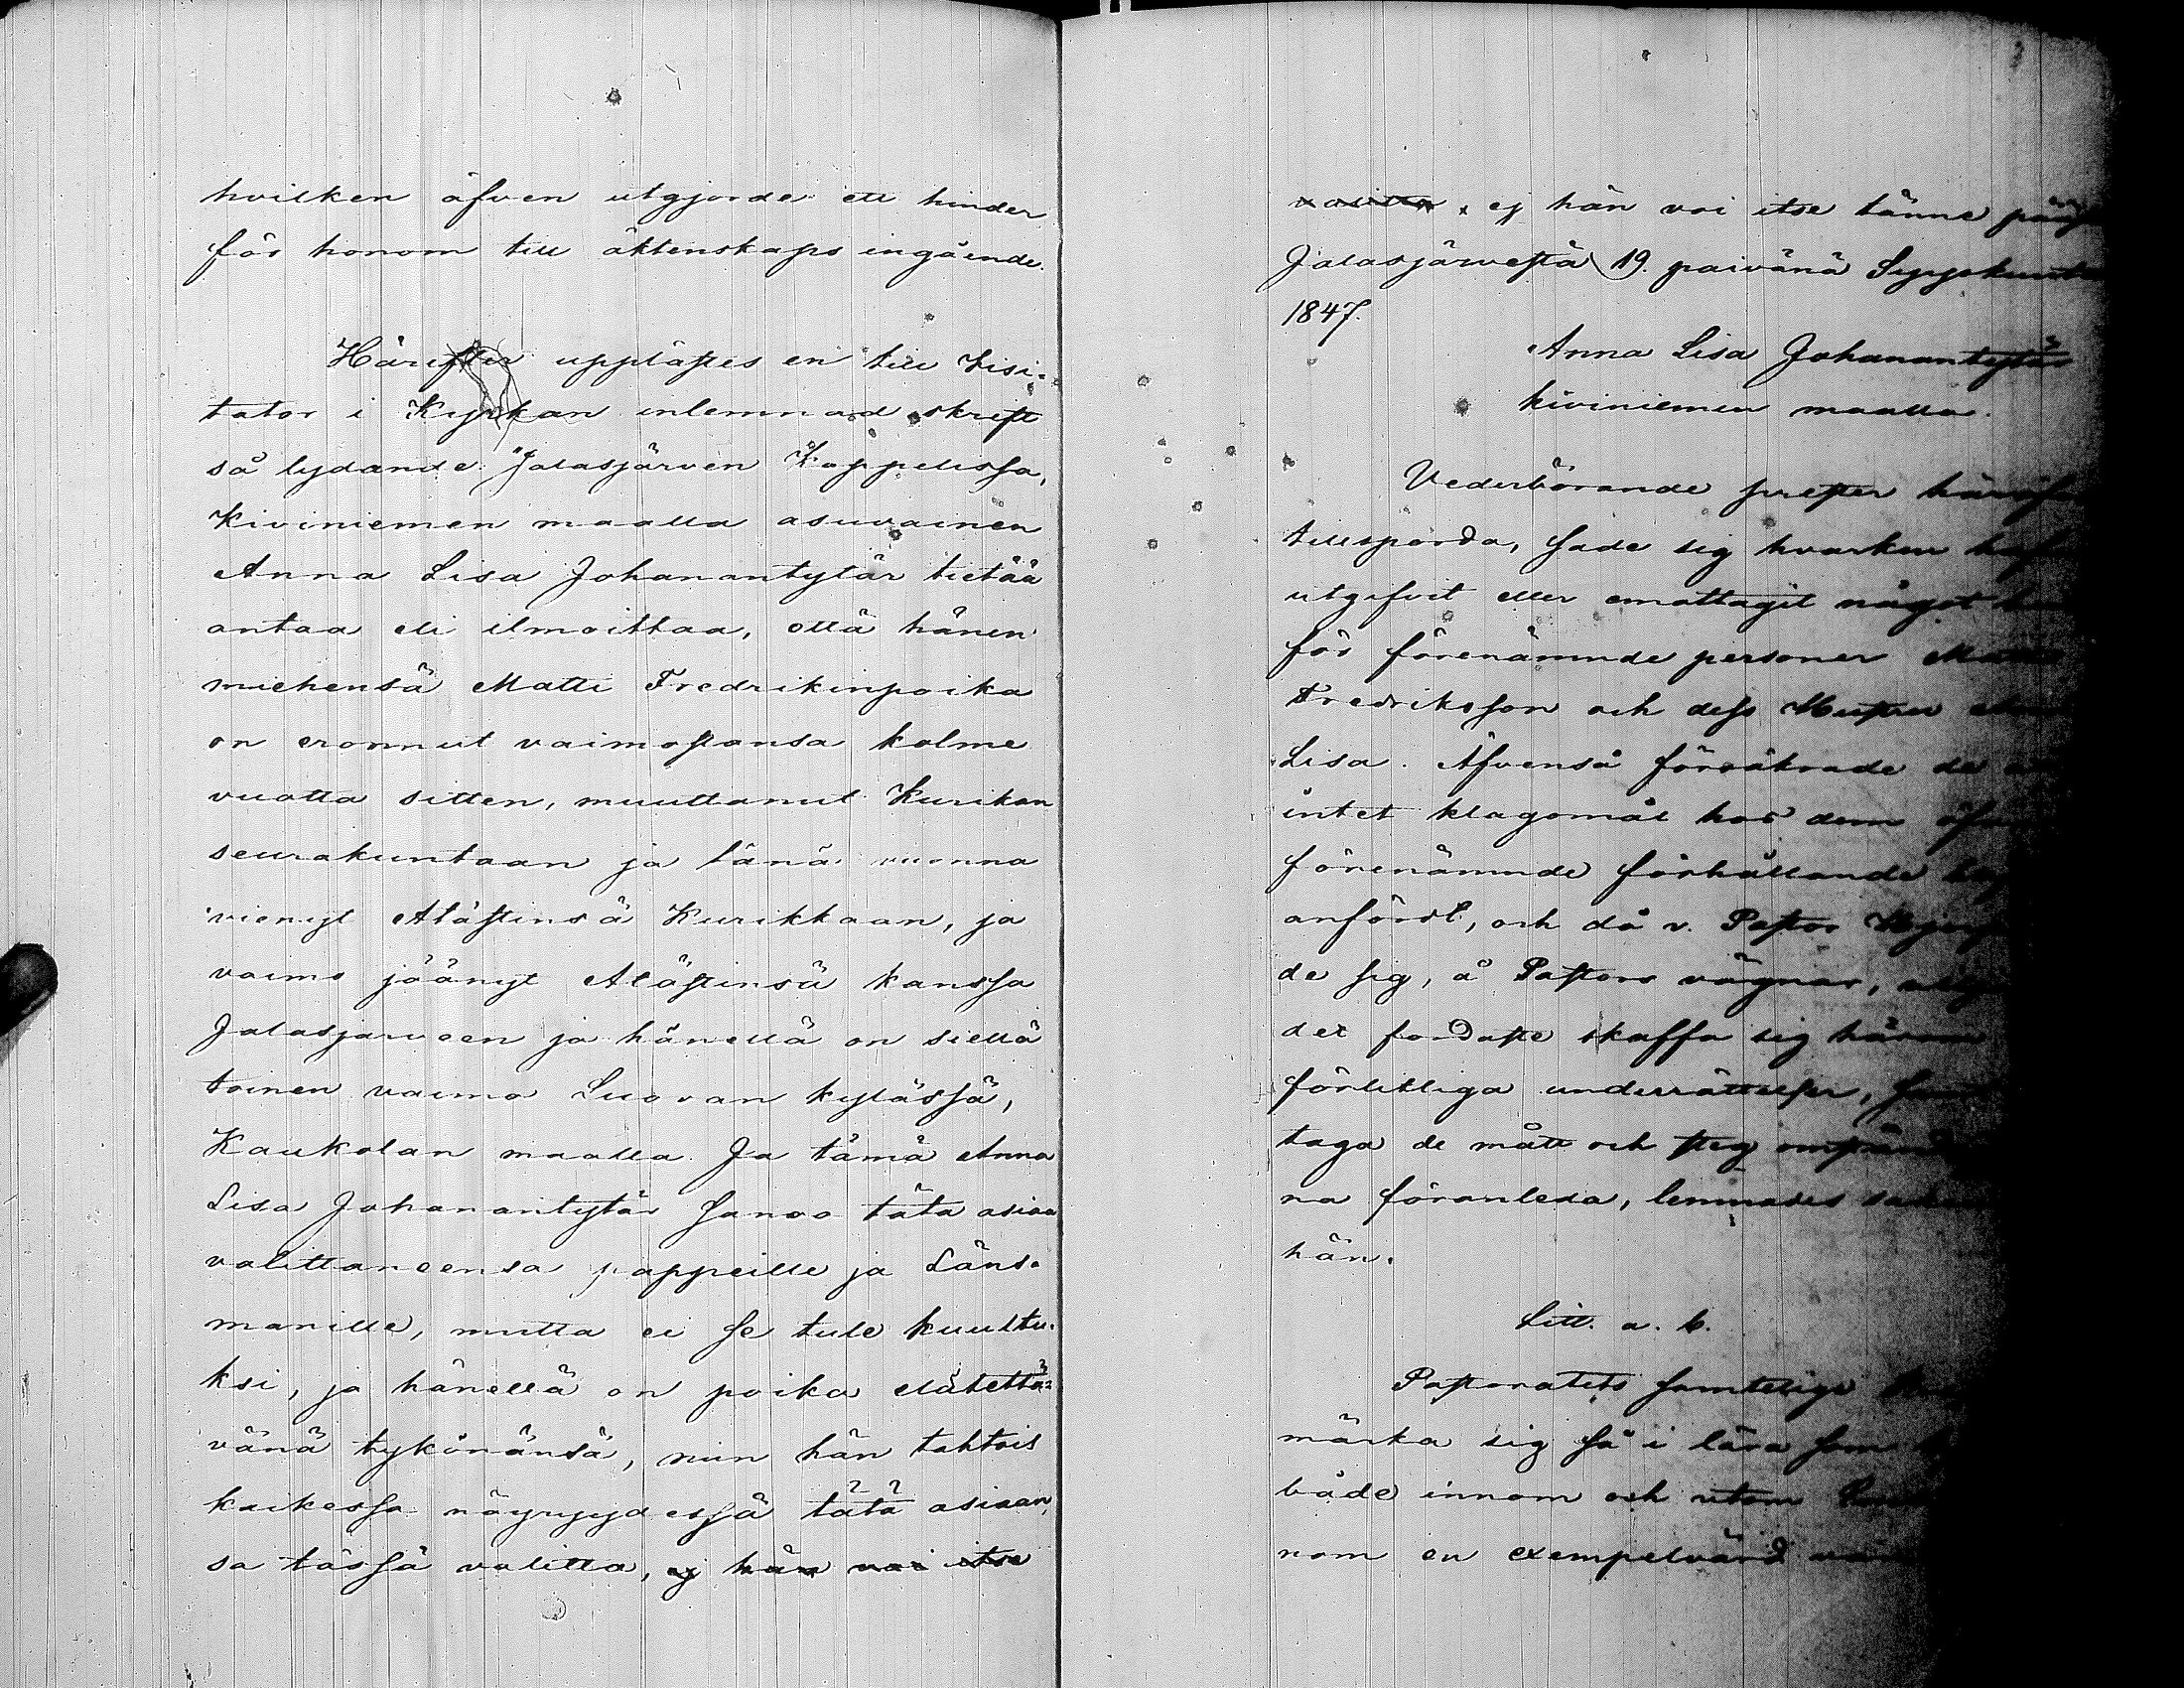 hvilken äfven utgjorde ett hinder
för honom till äktenskaps ingående.
Härefter upplästes en till Visi-
tator i Kyrkan inlemnad skrift
så lydande: "Jalasjärven Kappelissa,
Kiviniemen maalla asuvainen
Anna Lisa Johanantytär tietää
antaa eli ilmoittaa, että hänen
miehensä Matti Fredrikinpoika
on eronnut vaimostansa kolme
vuotta sitten, muuttanut Kurikan
seurakuntaan ja tänä vuonna
vienyt Atästinsä Kurikkaan, ja
vaimo jäänyt Atästinsä kanssa
Jalasjarveen ja hänellä on siellä
toinen vaimo Luovan kylässä,
Kaukolan maalla. Ja tämä Anna
Lisa Johanantytär sanoo täta asiaa
valittaneensa pappeille ja Läns-
manille, mutta ei se tule kuultu-
ksi, ja hänellä on poika elätettä-
vänä tykönänsä, niin hän tahtois
kaikessa nöyryydessä tätä asiaan-
sa tässä valitta, ej hän voi itse
valitta, ej hän voi itse tänne
Jalasjärvestä 19. paivänä Syyskuuta
1847.
Anna Lisa Johanantytär
kiviniemen maalla.
Vederbörande prester
tillsporda, sade sig hvarken
utgifvit eller emottagit något
för förenämnde personer
Fredriksson och dess Hustru
Lisa. Äfvenså försäkrade de
intet klagomål hos dem
förenämnde förhållande
anfördt, och då v. Pastor
de sig, å Pastors vägnar,
det fordaste skaffa sig
förlitliga underrättelser,
taga de mått och steg
na föranleda, lemnades
hän.
Litt. a. b.
Pastoratets samtelige
märka sig så i lära som
både innom och utom
nom en exempelvärd